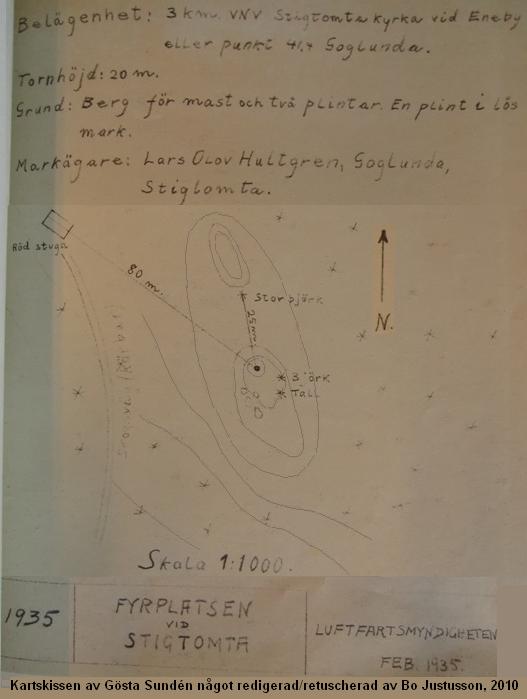 Belägenhet: 3 km. VNV Stigtomta kyrka vid Eneby
eller punkt 41,4 Goglunda.
Tornhöjd: 20 m.
Grund: Berg för mast och två plintar. En plint i lös
mark.
Markägare: Lars Olov Hultgren, Goglunda,
Stigtomta.
Röd stuga
80 m.
Storbjörk
25 m
N.
Björk
Tall
Skala 1:1000.
1935
FYRPLATSEN
VID
STIGTOMTA
LUFTFARTSMYNDIGHETEN
FEB. 1935.
Kartskissen av Gösta Sundén något redigerad/retuscherad av Bo Justusson, 2010